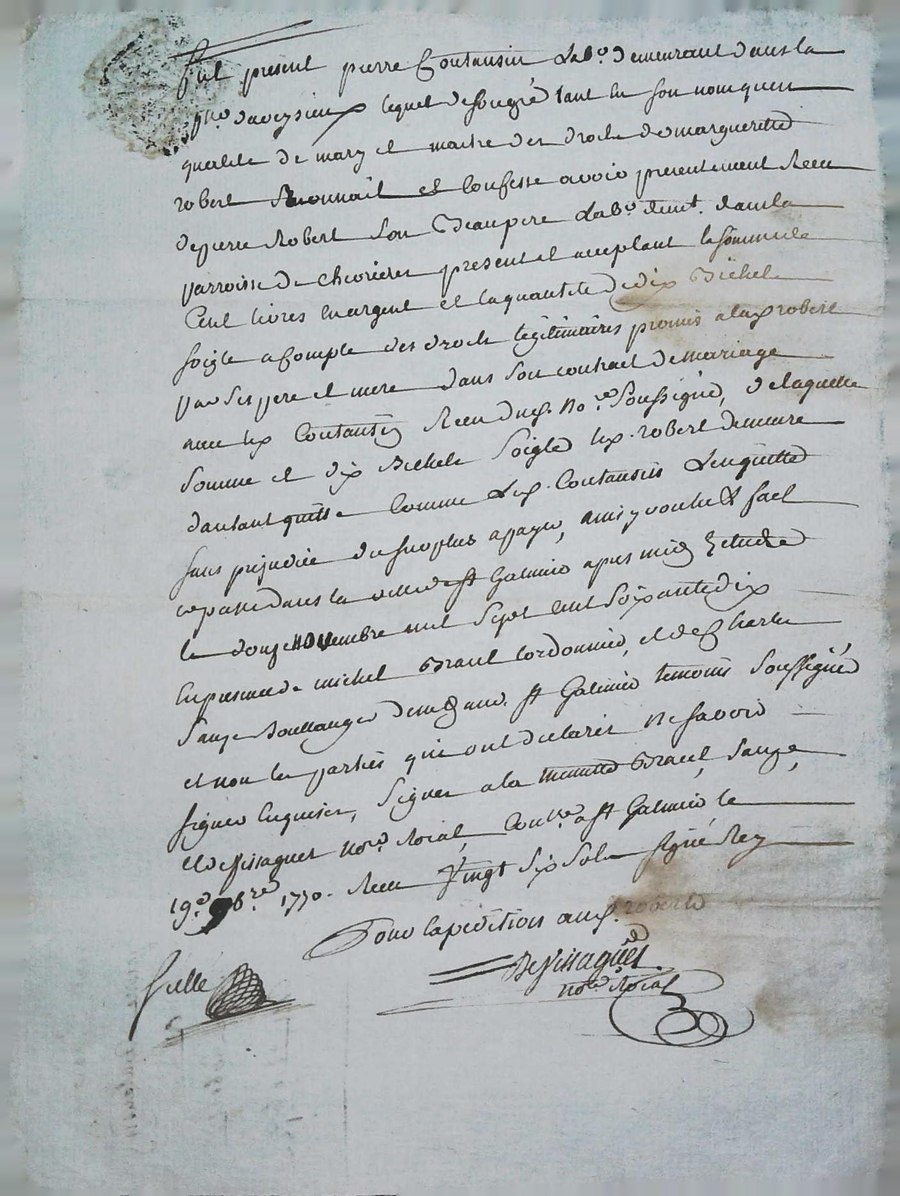 fut present pierre Coutansin Lab.r demeurant dans la
p.sse daveysieux lequel de son gré tant en son nom quen
qualité de mary et maitre des droits de margueritte
robert Reconnait et Confesse avoir presentement Receu
de pierre Robert son Beaupere Lab.r dem.t dans la
parroisse de chevrieres present et acceptant la somme de
Cent livres en argent et la quantité de dix Bichets
soigle a Compte des droits legitimaires promis a lad. robert
par ses pere et mere dans son contrat de mariage
avec led. Coutansin Receu dud. no.re soussigné, de laquelle
somme et dix Bichets soigle led. robert demeure
dautant quitte Comme led. Coutansin Len quitte
sans prejudice du surplus a payer, ainsy voulu & fait
et passé dans la ville de st Galmier apres midy Etude
le douze novembre mil sept cent soixante dix
En presence de michel Grael Cordonnier, et de Charles
sauze Boullanger dem.t aud. st Galmier temoins soussignés
et non les parties qui ont declarés ne savoir
signer Enquises, signés a la minutte Grael, sauze,
et de Meissaguet no.re Roial, Con.le a st Galmier le
19.e 9bre 1770. Receu vingt six sols signé Rey
Pour Expedition aud. robert
no.re Roial
scellé